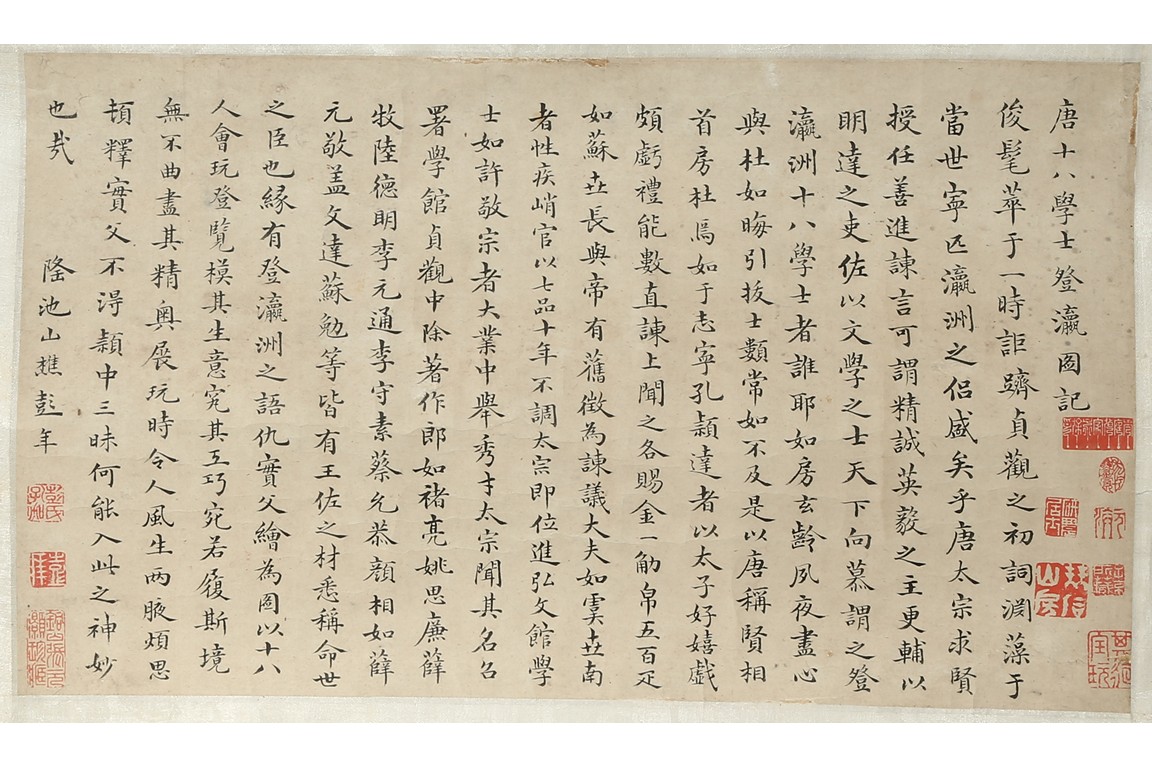 唐十八學士登瀛圖記
俊髦萃于一時詎躋貞觀之初詞淵藻于
當世寧匹瀛洲之侶盛矣乎唐太宗求賢
授任善進諫言可謂精誠英毅之主更輔以
明達之吏佐以文學之士天下向慕謂之登
瀛洲十八學士者誰耶如房玄齡夙夜盡心
與杜如晦引拔士類常如不及是以唐稱賢相
首房杜焉如于志寧孔穎達者以太子好嬉戲
頗虧禮能數直諫上聞之各賜金一觔帛五百疋
如蘇世長與帝有舊徵為諫議大夫如虞世南
者性疾峭官以七品十年不調太宗即位進弘文館學
士如許敬宗者大業中舉秀才太宗聞其名召
署學館貞觀中除著作郎如褚亮姚思廉薛
牧陸德明李元通李守素蔡允恭顏相如薛
元敬盖文達蘇勉等皆有王佐之材悉稱命世
之臣也緣有登瀛洲之語仇實父繪為圖以十八
人會玩登覽模其生意究其工巧宛若履斯境
無不曲盡其精奧展玩時令人風生兩腋煩思
頓釋實父不淂穎中三昧何能入此之神妙
也哉
隆池山樵彭年